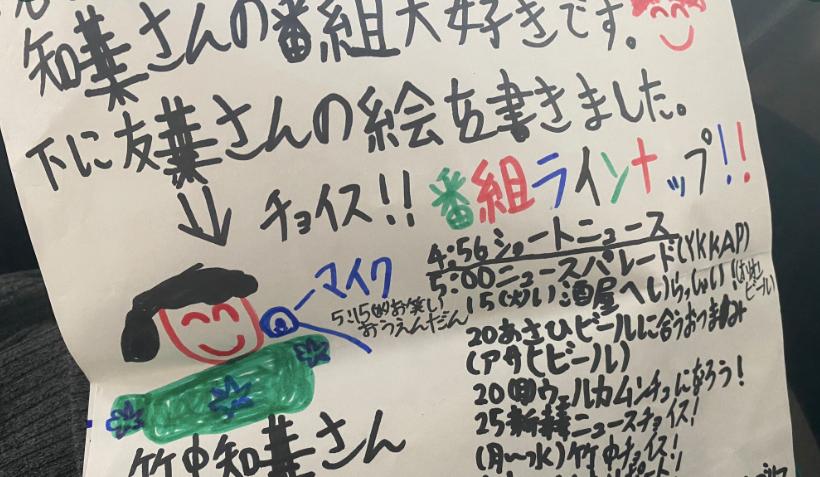 知葉さんの番組大好きです。
下に友葉さんの絵を書きました。
↓ チョイス!! 番組ラインナップ!!
マイク
5:15(木)お笑い
おうえんだん
竹中知葉さん
4:56 ショートニュース
5:00ニュースパレード(YKKAP)
15(火)い酒屋へいらっしゃい!
ビール)
20あさひビールに合うおつまみ
(アサヒビール)
20(月)ウェルカムンチュになろう!
25新華ニュースチョイス!
(月〜水)竹中チョイス!